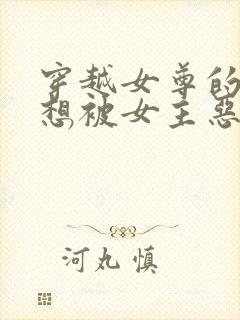 穿越女尊的
想被女主惡
河丸慎